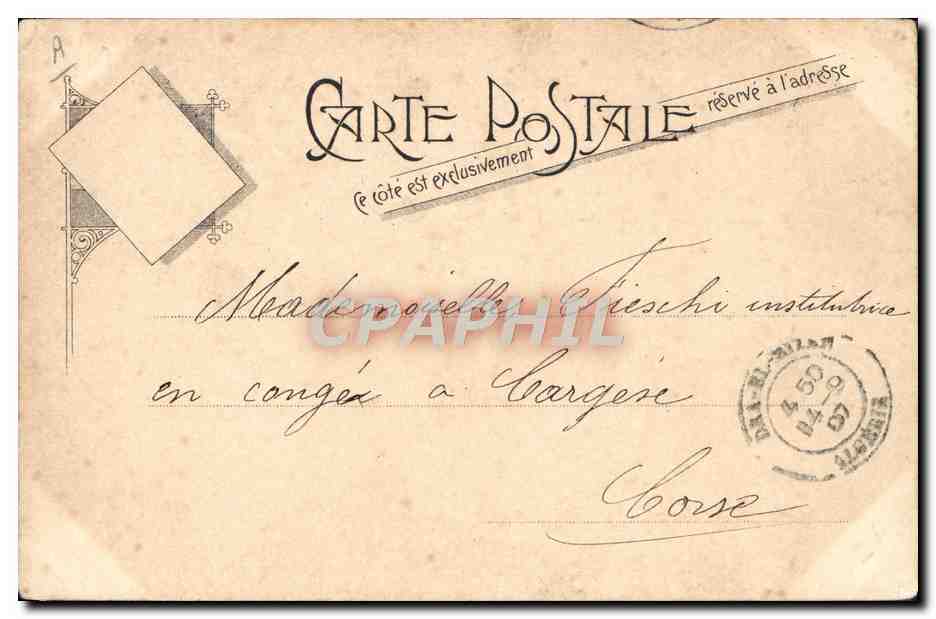 A
CARTE POSTALE
Ce côté est exclusivement réservé à l'adresse
Mademoiselle Fieschi institutrice
en congéa a Cargèse
Corse
CPAPHIL
DRA-EL-MIZAN
4 50
14
07